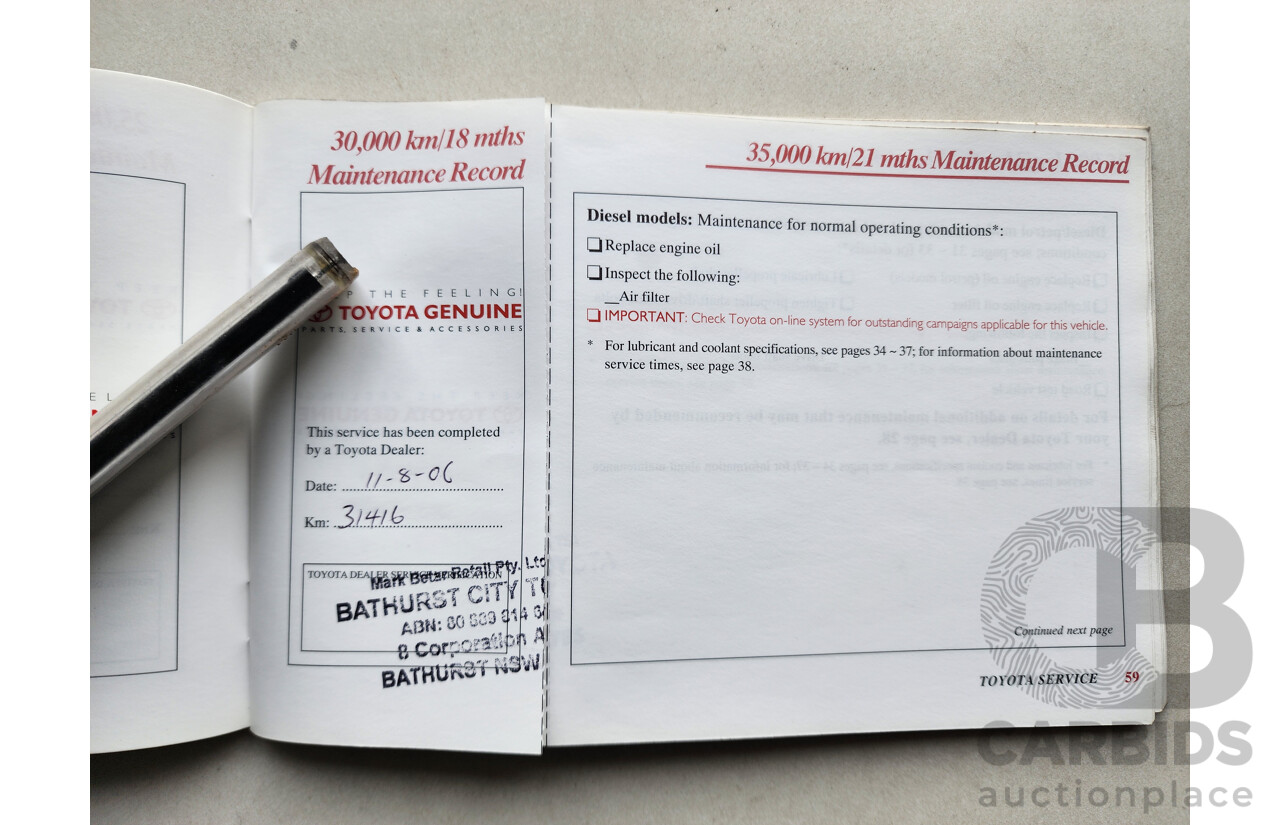 30,000 km/18 mths
Maintenance Record
P THE FEELING!
TOYOTA GENUINE
PARTS, SERVICE & ACCESSORIES
This service has been completed
by a Toyota Dealer:
Date: 11-8-06
Km: 31416
TOYOTA DEALER SERVICE VERIFICATION
Mark Betar Retail Pty. Ltd
BATHURST CITY T
ABN: 60 814
8 Corporation A
BATHURST NSW
35,000 km/21 mths Maintenance Record
Diesel models: Maintenance for normal operating conditions*:
Replace engine oil
Inspect the following:
__Air filter
IMPORTANT: Check Toyota on-line system for outstanding campaigns applicable for this vehicle.
* For lubricant and coolant specifications, see pages 34 ~ 37; for information about maintenance
service times, see page 38.
Continued next page
TOYOTA SERVICE 59
CARBIDS
auctionplace